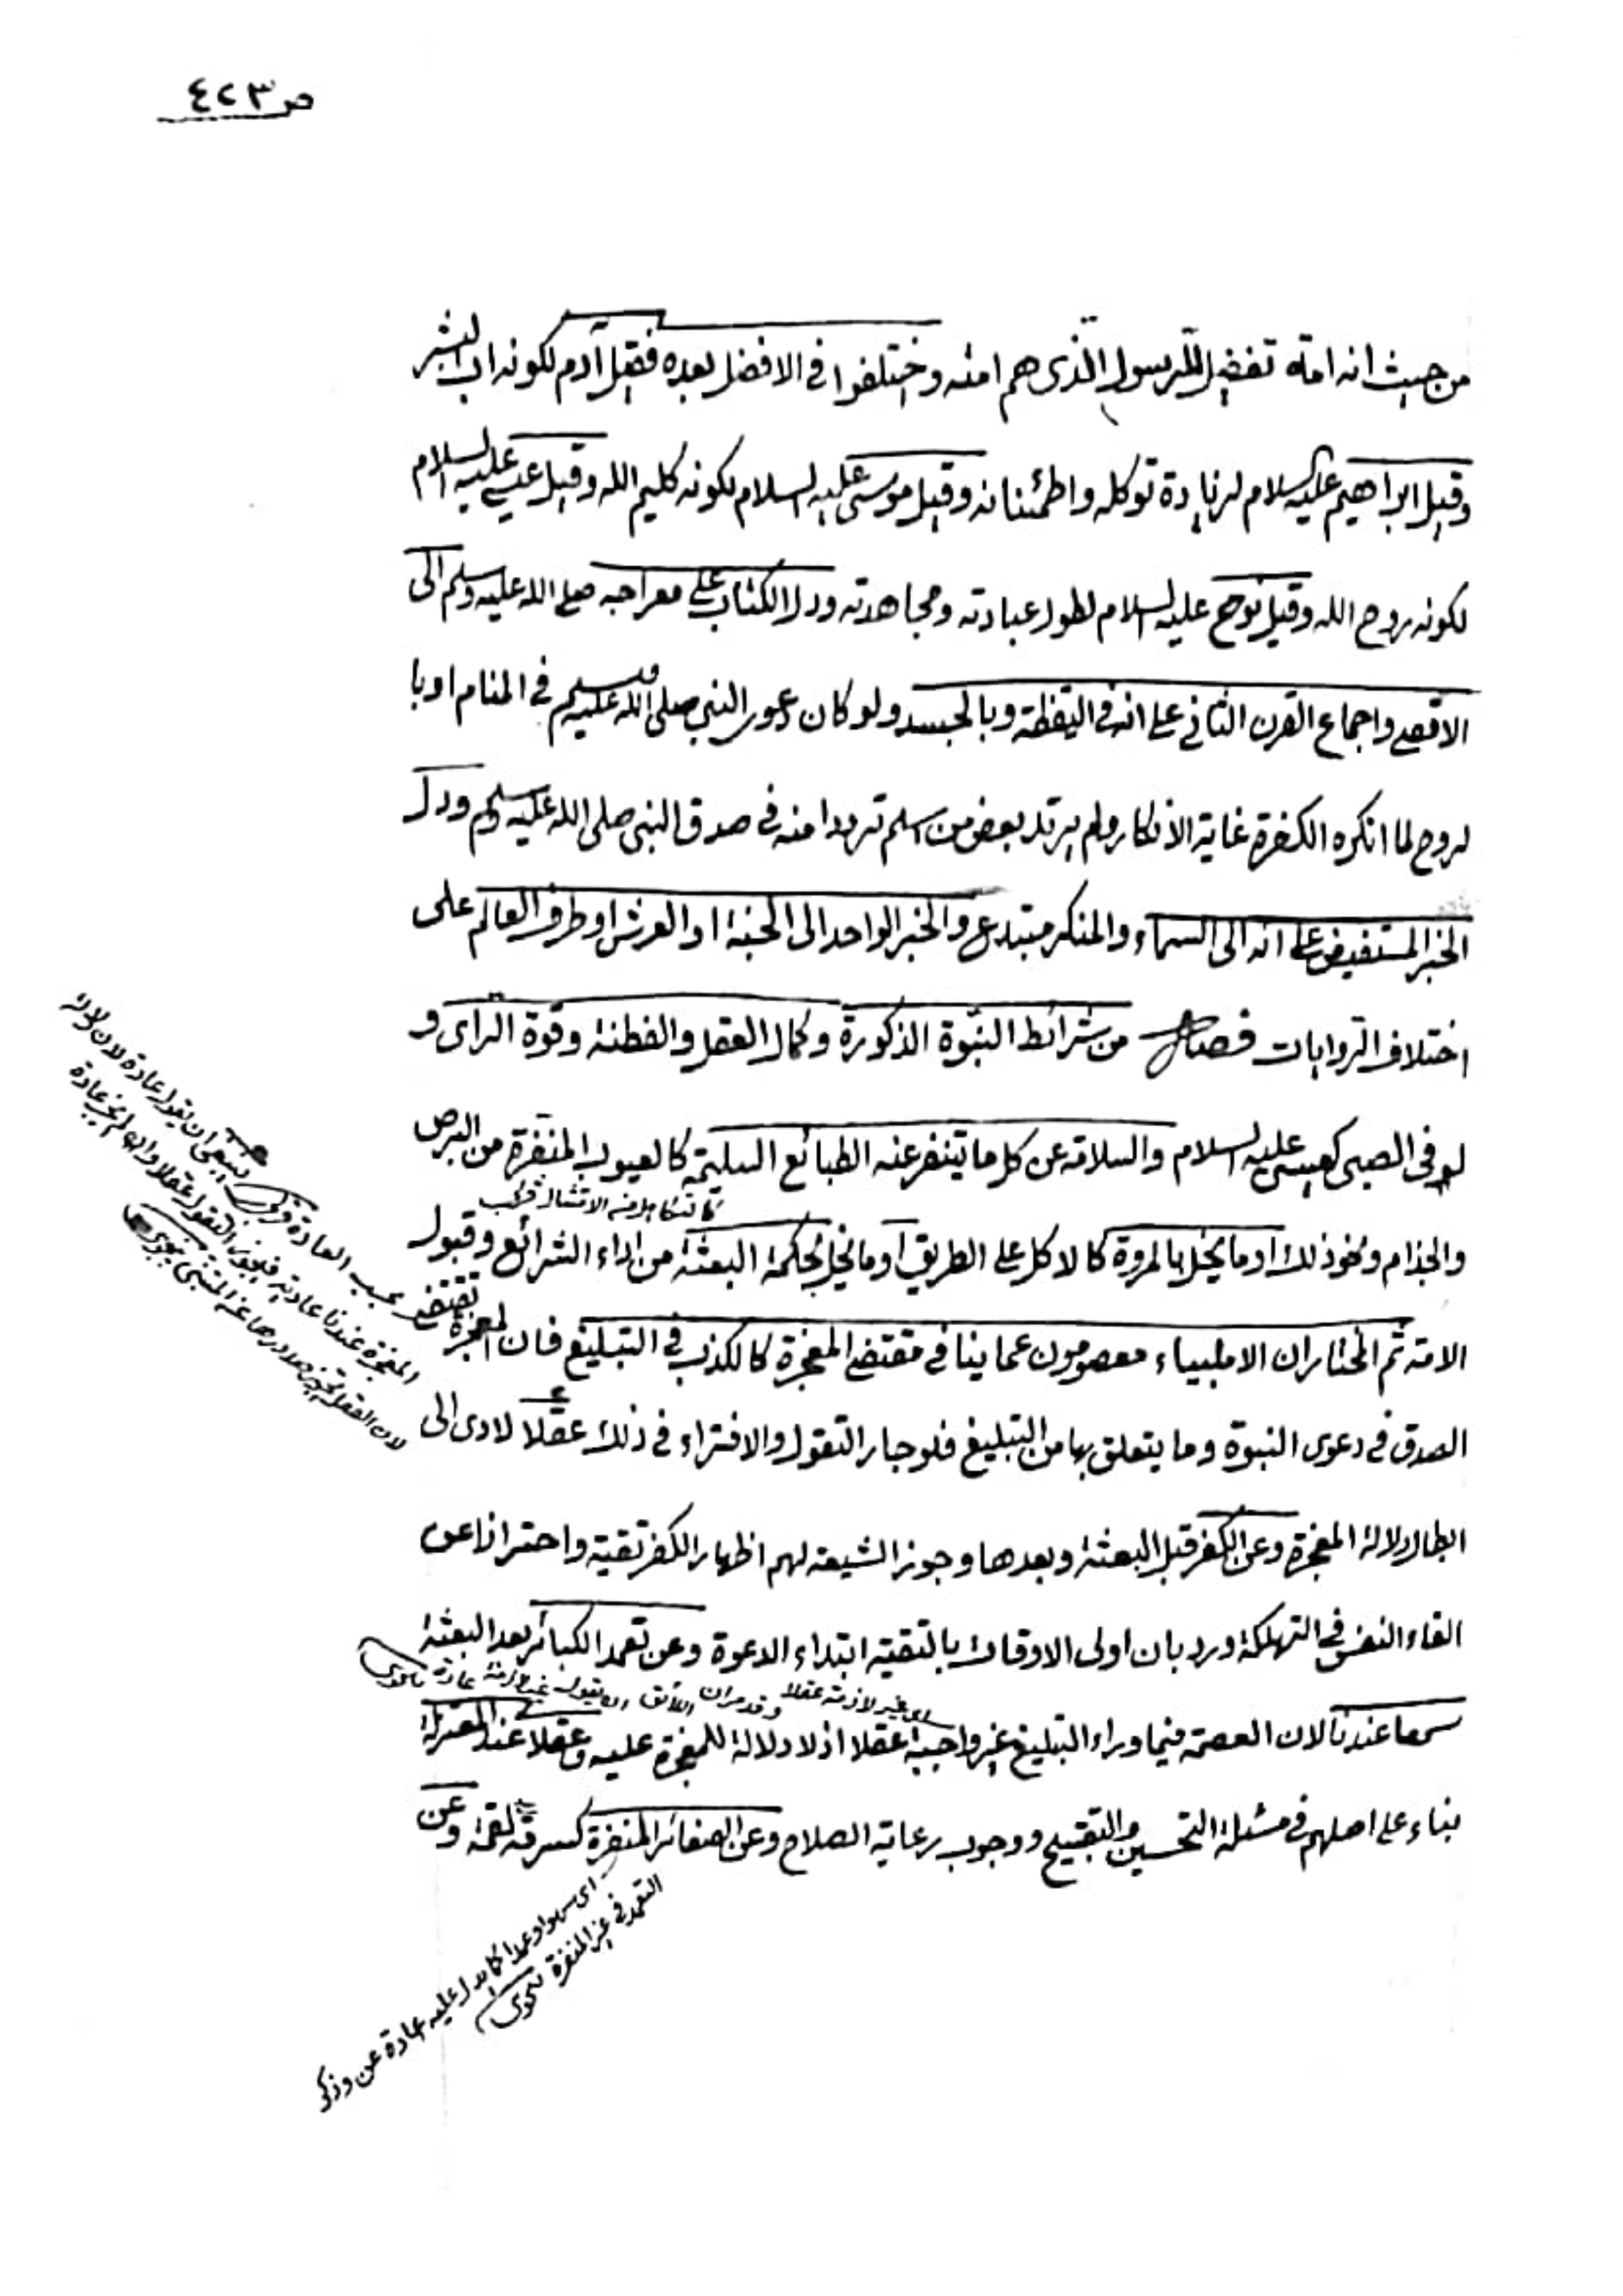 ص ٤٢٣
من حيث انه امته تفضيل للرسول الذى هم امته واختلفوا فى الافضل بعده فقيل آدم لكونه اب البشر
وقيل ابراهيم عليه السلام لزيادة توكله واطمئنانه وقيل موسى عليه السلام لكونه كليم الله وقيل عيسى عليه السلام
لكونه روح الله وقيل نوح عليه السلام لطول عبادته ومجاهدته ودل الكتاب على معراجه صلى الله عليه وسلم الى
الاقصى واجماع القرن الثانى على انه فى اليقظة وبالجسد ولو كان دعوى النبى صلى الله عليه وسلم فى المنام او با
لروح لما انكره الكفرة غاية الانكار ولم يرتد بعض من اسلم ترددا منه فى صدق النبى صلى الله عليه وسلم ودل
الخبر المستفيض على انه الى السماء والمنكر مبتدع والخبر الواحد الى الجنة او العرش او طرف العالم على
اختلاف الروايات فصل من شرائط النبوة الذكورة وكمال العقل والفطنة وقوة الراى و
لو فى الصبى كعيسى عليه السلام والسلامة عن كل ما يتنفر عنه الطبائع السليمة كالعيوب المنفرة من البرص
والجذام ونحو ذلك او ما يخل بالمروة كالاكل على الطريق او ما يخل بحكمة البعثة من اداء الشرائع وقبول
الامة ثم المختار ان الانبياء معصومون عما ينافى مقتضى المعجزة كالكذب فى التبليغ فان المعجزة تقتضى
الصدق فى دعوى النبوة وما يتعلق بها من التبليغ فلو جاز التقول والافتراء فى ذلك عقلا لادى الى
ابطال دلالة المعجزة وعن الكفر قبل البعثة وبعدها وجوز الشيعة لهم اظهار الكفر تقية واحترازا عن
القاء النفس فى التهلكة ورد بان اولى الاوقات بالتقية ابتداء الدعوة وعن تعمد الكبائر بعد البعثة
سمعا عندنا لان العصمة فيما وراء التبليغ غير واجبة عقلا اذ لا دلالة للمعجزة عليه وعقلا عند المعتزلة
بناء على اصلهم فى مسئلة التحسين والتقبيح ووجوب رعاية الصلاح وعن الصغائر المنفرة كسرقة لقمة وعن
ينبغى ان يقول عادة لان دلالة
المعجزة عندنا عادية فيجوز التقول عقلا وان لم يجز عادة
اى غير لازمة عقلا وقد مر ان اللائق ان يقول غير لازمة عادة
اى سهوا وعمدا كما يدل عليه اعادة عن وذكر
التعمد فى غير المنفرة